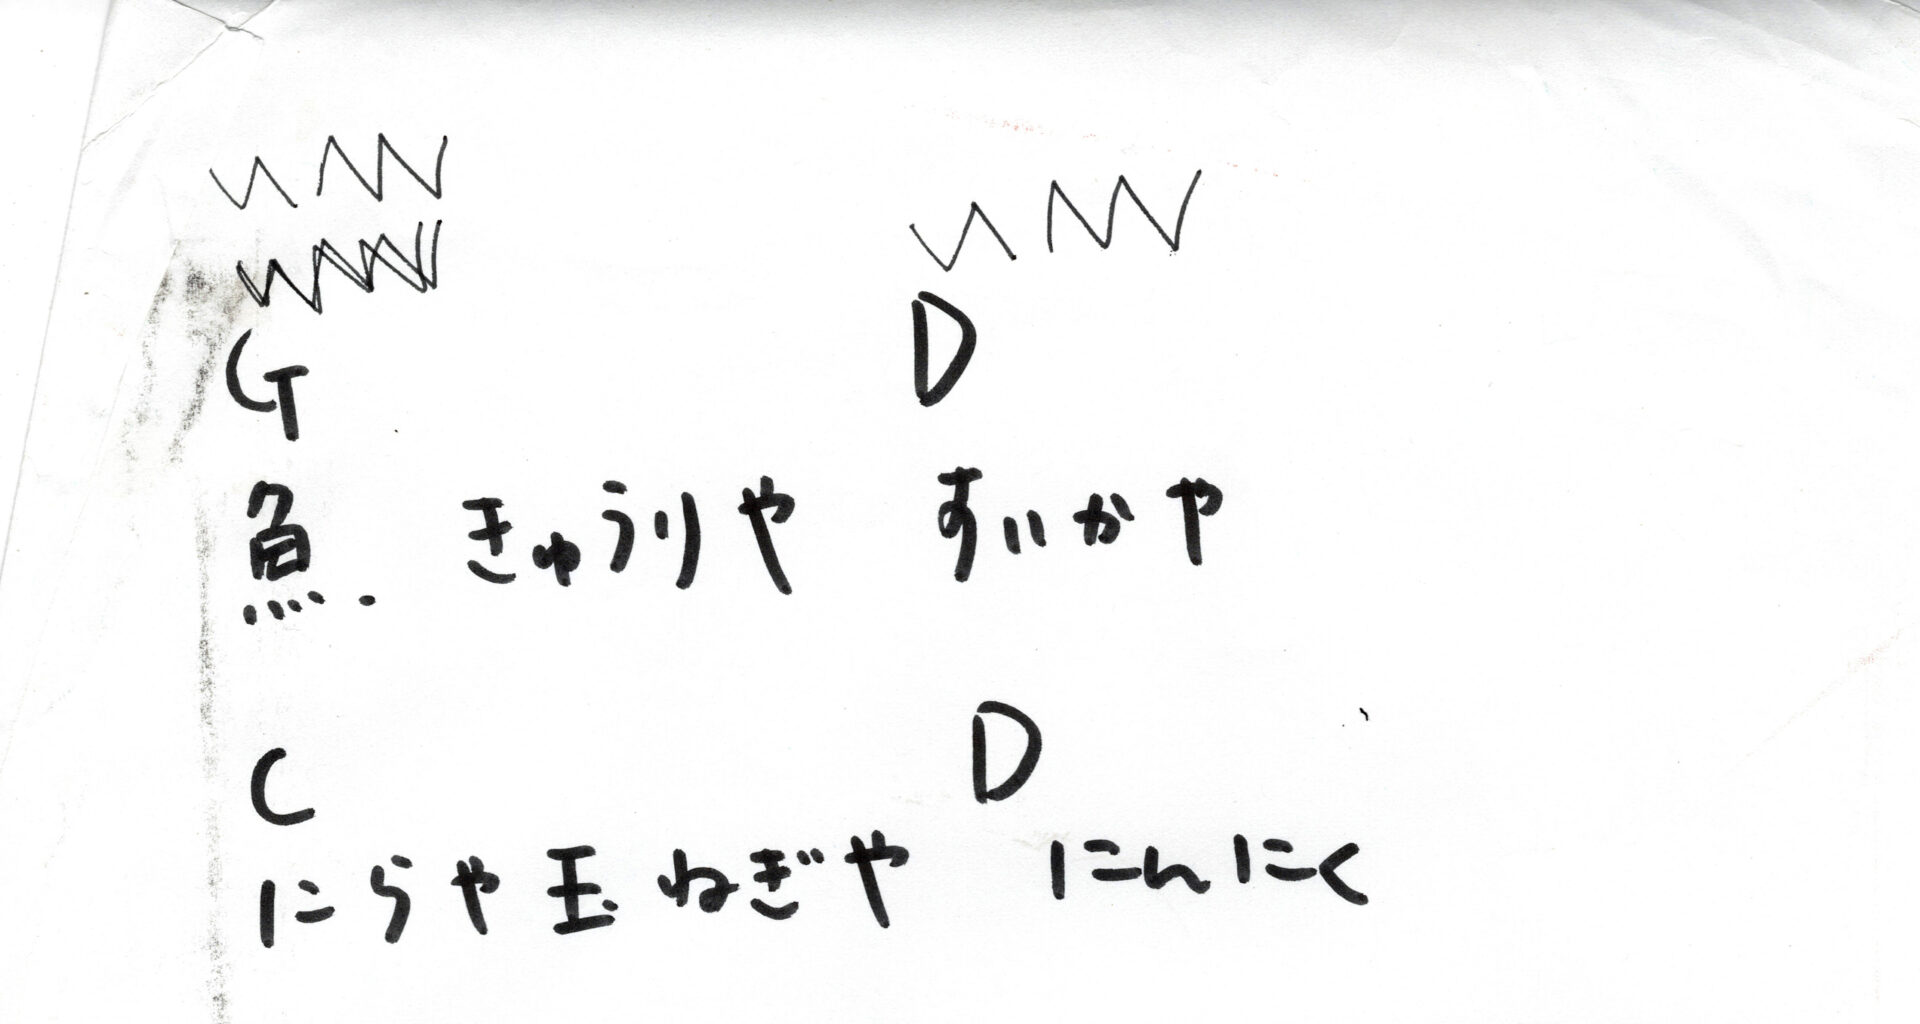 G D
魚. きゅうりや すいかや
C D
にらや玉ねぎや にんにく